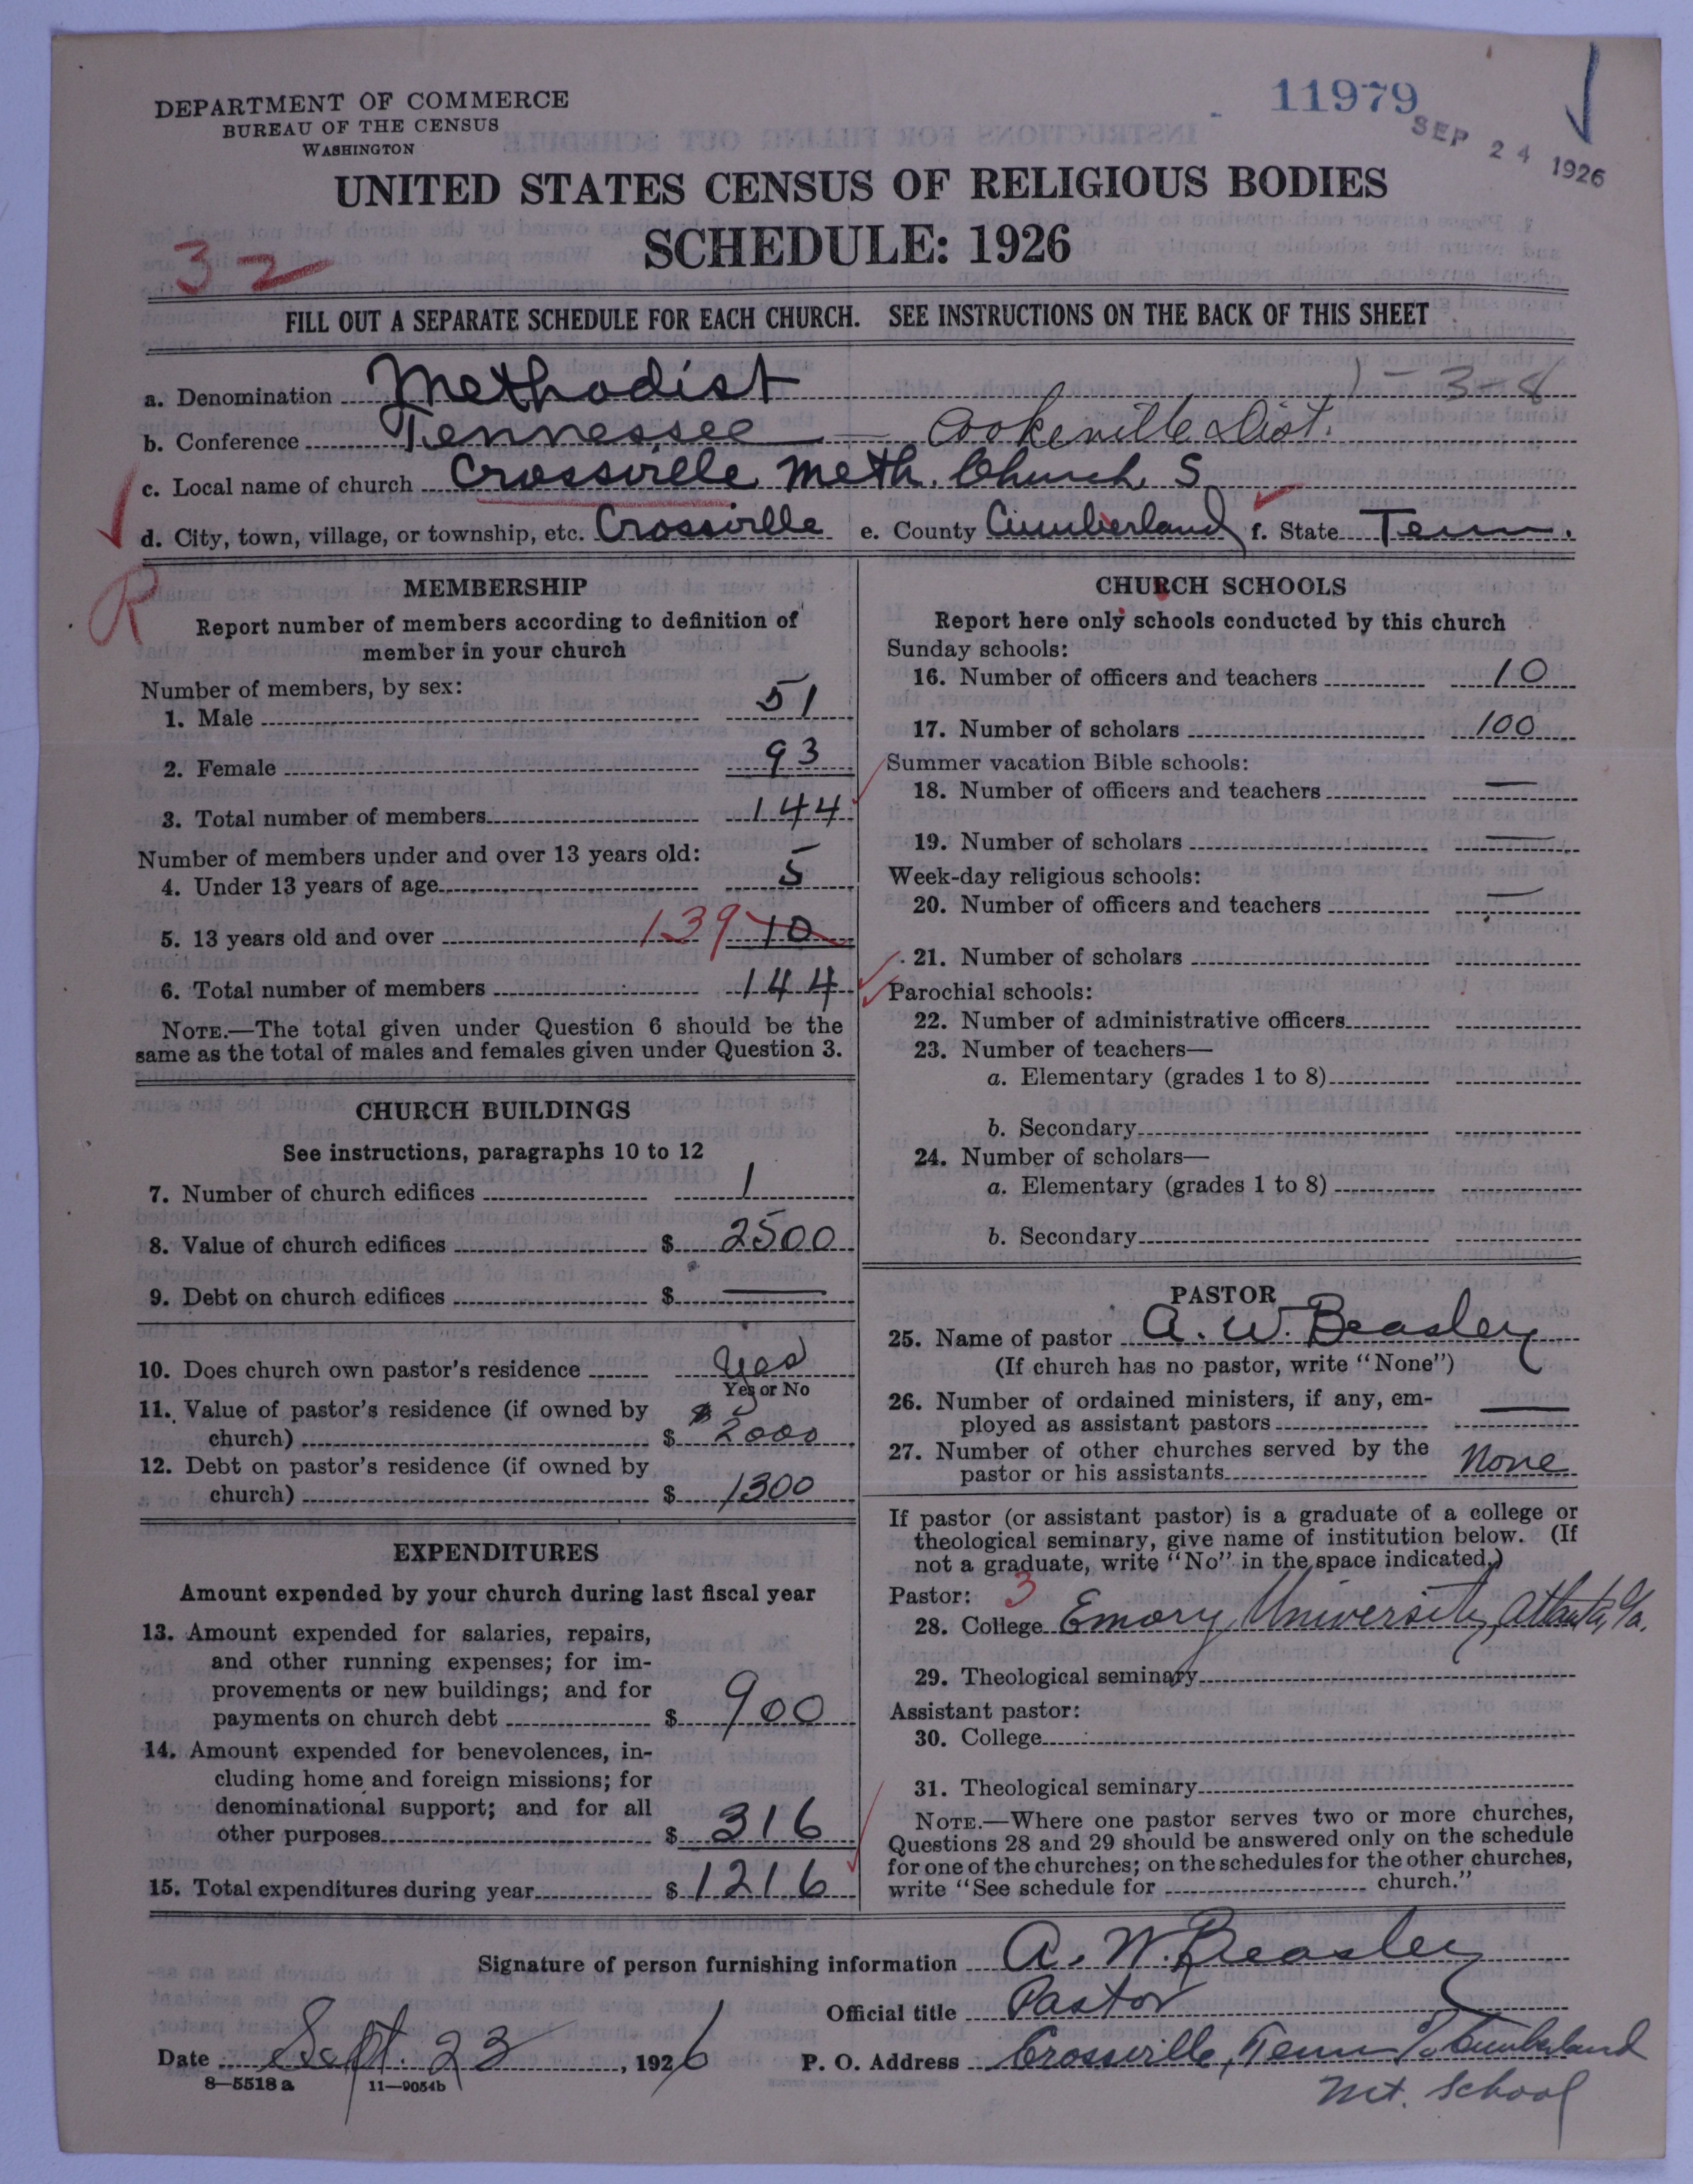 11979
SEP 24 1926
DEPARTMENT OF COMMERCE
BUREAU OF THE CENSUS
WASHINGTON
UNITED STATES CENSUS OF RELIGIOUS BODIES
SCHEDULE: 1926
32
FILL OUT A SEPARATE SCHEDULE FOR EACH CHURCH. SEE INSTRUCTIONS ON THE BACK OF THIS SHEET
a. Denomination Methodist 1-3-8
b. Conference Tennessee — Cookeville Dist.
c. Local name of church Crossville Meth. Church S
d. City, town, village, or township, etc. Crossville e. County Cumberland f. State Tenn.
R
MEMBERSHIP
Report number of members according to definition of
member in your church
Number of members, by sex:
1. Male 51
2. Female 93
3. Total number of members 144
Number of members under and over 13 years old:
4. Under 13 years of age 5
5. 13 years old and over 139 10
6. Total number of members 144
NOTE.—The total given under Question 6 should be the
same as the total of males and females given under Question 3.
CHURCH BUILDINGS
See instructions, paragraphs 10 to 12
7. Number of church edifices 1
8. Value of church edifices $ 2500
9. Debt on church edifices $ —
10. Does church own pastor's residence Yes
Yes or No
11. Value of pastor's residence (if owned by
church) $ $2000
12. Debt on pastor's residence (if owned by
church) $ 1300
EXPENDITURES
Amount expended by your church during last fiscal year
13. Amount expended for salaries, repairs,
and other running expenses; for im-
provements or new buildings; and for
payments on church debt $ 900
14. Amount expended for benevolences, in-
cluding home and foreign missions; for
denominational support; and for all
other purposes $ 316
15. Total expenditures during year $ 1216
CHURCH SCHOOLS
Report here only schools conducted by this church
Sunday schools:
16. Number of officers and teachers 10
17. Number of scholars 100
Summer vacation Bible schools:
18. Number of officers and teachers —
19. Number of scholars —
Week-day religious schools:
20. Number of officers and teachers —
21. Number of scholars
Parochial schools:
22. Number of administrative officers
23. Number of teachers—
a. Elementary (grades 1 to 8)
b. Secondary
24. Number of scholars—
a. Elementary (grades 1 to 8)
b. Secondary
PASTOR
25. Name of pastor A. W. Beasley
(If church has no pastor, write "None")
26. Number of ordained ministers, if any, em-
ployed as assistant pastors —
27. Number of other churches served by the
pastor or his assistants None
If pastor (or assistant pastor) is a graduate of a college or
theological seminary, give name of institution below. (If
not a graduate, write "No" in the space indicated.)
Pastor: 3
28. College Emory University, Atlanta, Ga.
29. Theological seminary
Assistant pastor:
30. College
31. Theological seminary
NOTE.—Where one pastor serves two or more churches,
Questions 28 and 29 should be answered only on the schedule
for one of the churches; on the schedules for the other churches,
write "See schedule for church."
Signature of person furnishing information A. W. Beasley
Official title Pastor
Date Sept. 23, 1926 P. O. Address Crossville, Tenn % Cumberland
Mt. School
8—5518a 11—9054b